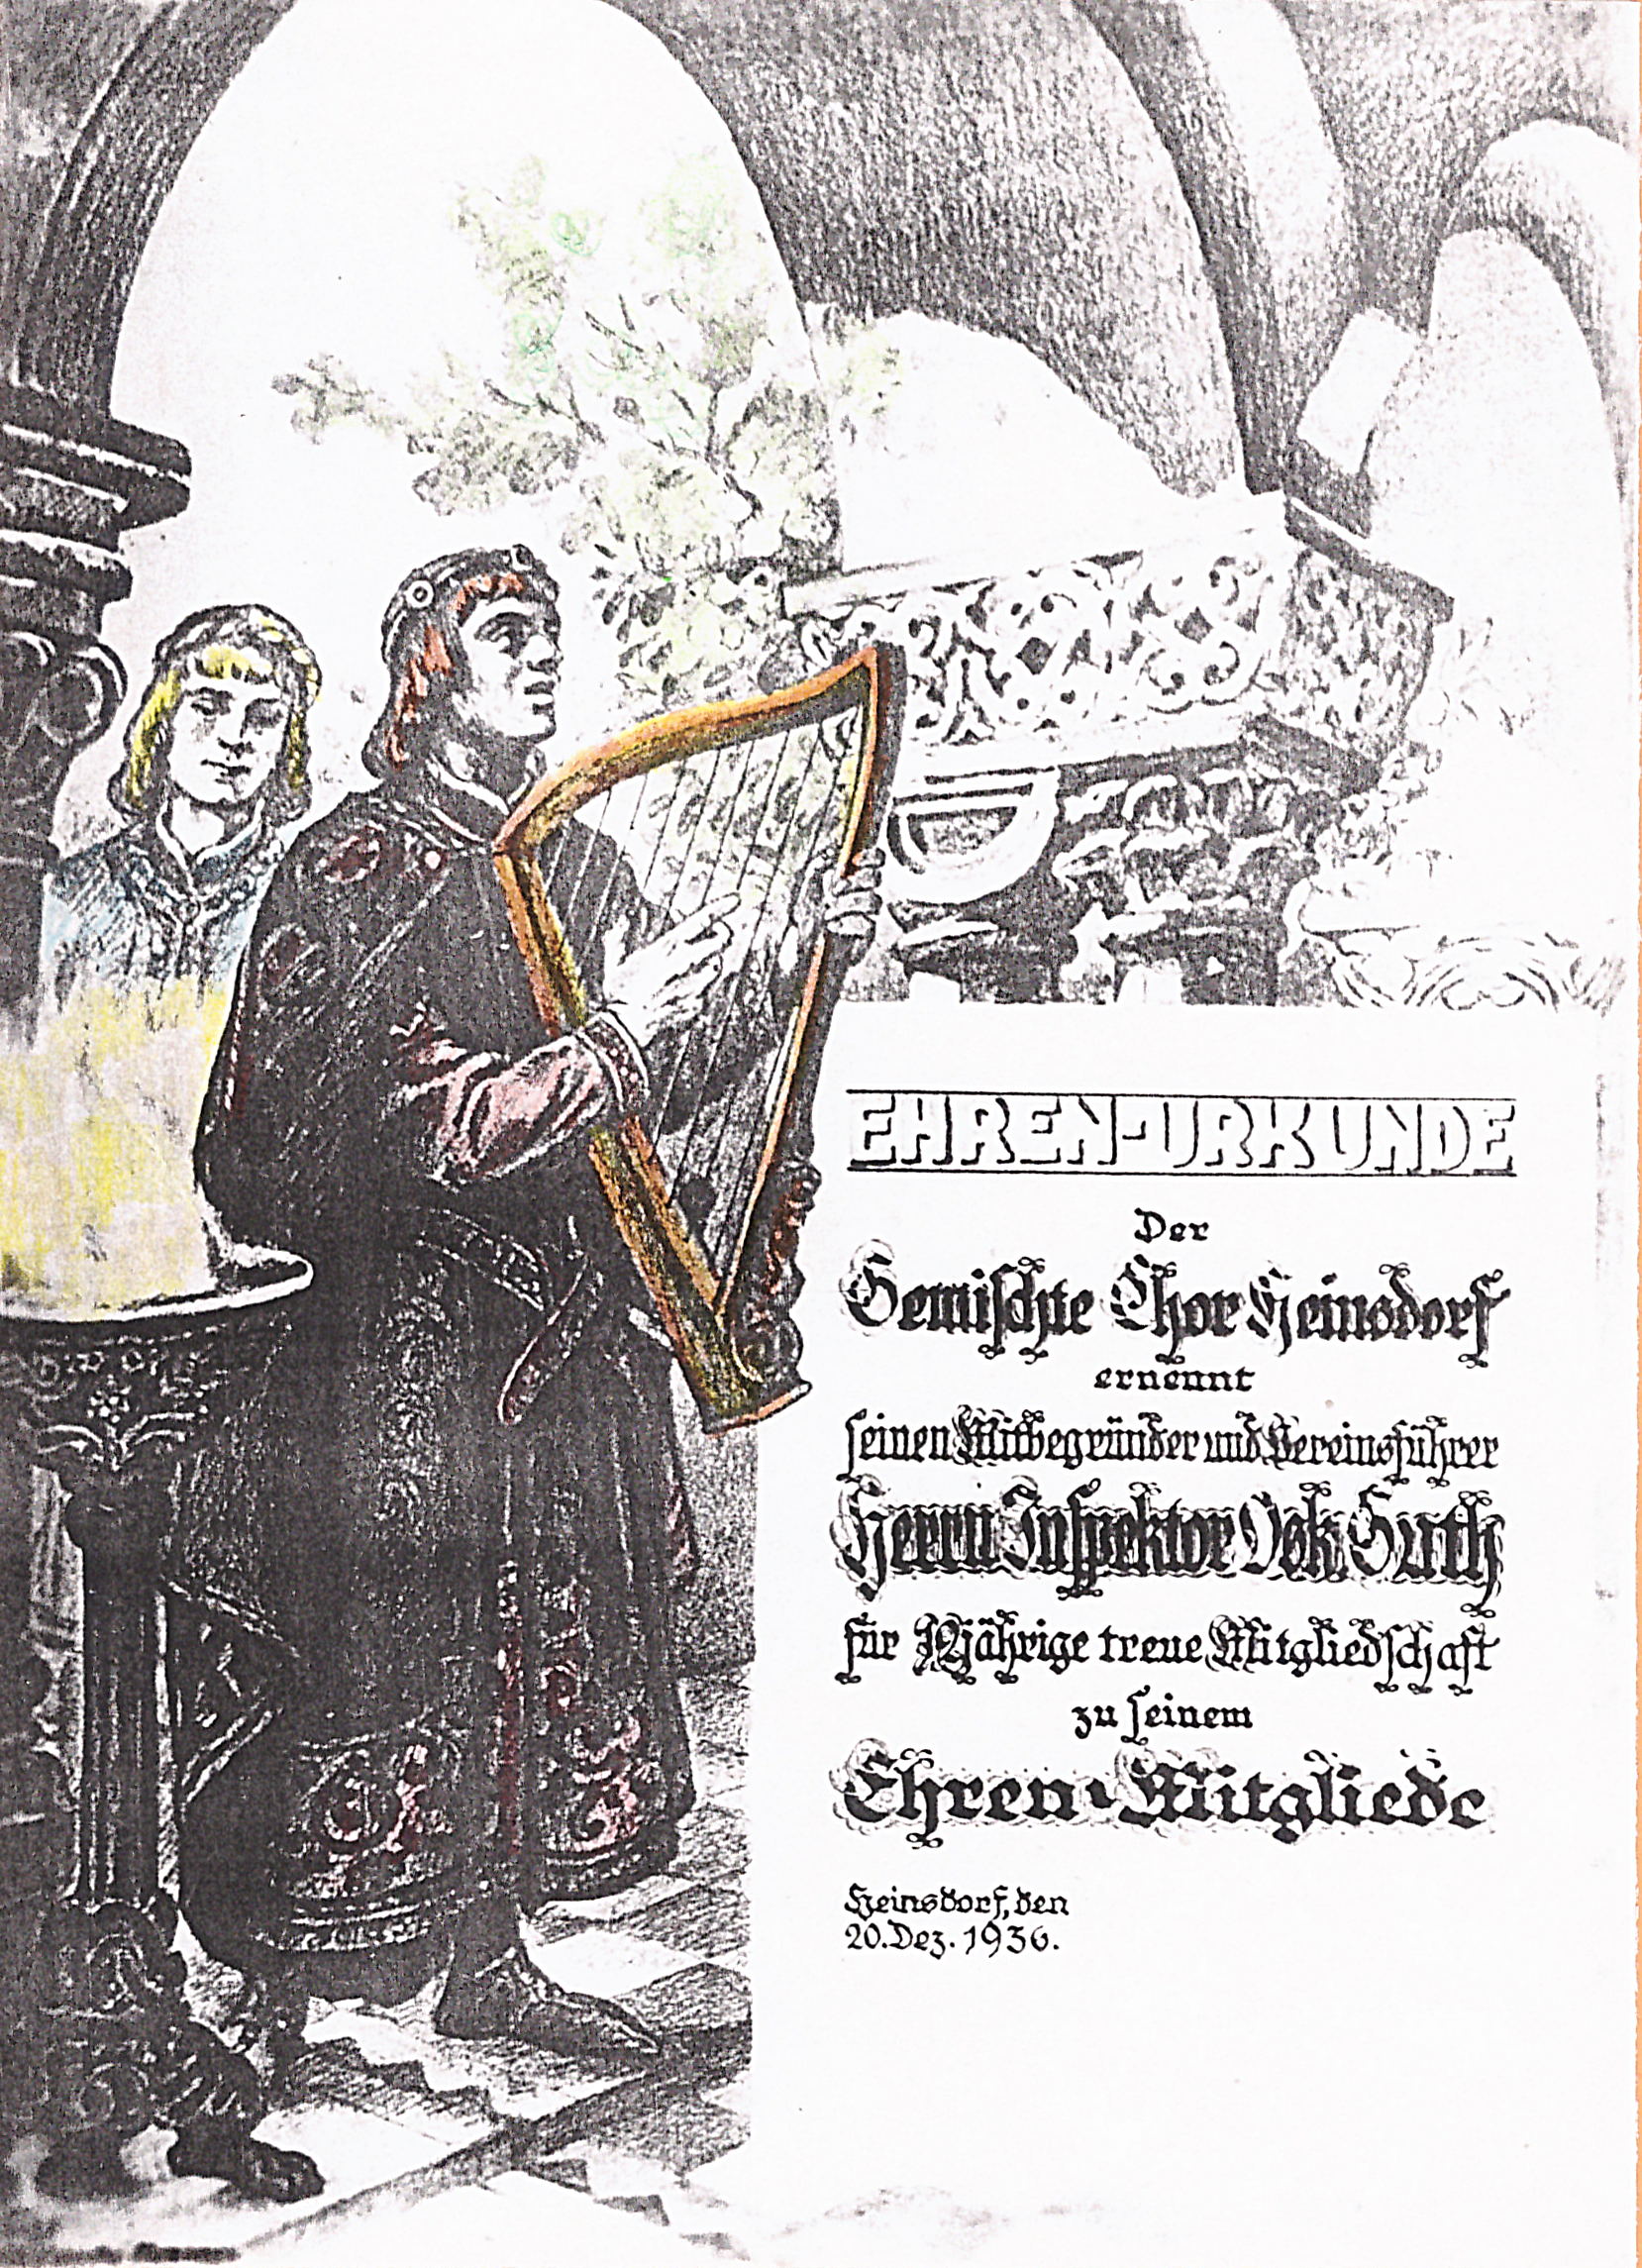 EHREN-URKUNDE
Der
Gemischte Chor Heinsdorf
ernennt
seinen Mitbegründer und Vereinsführer
Herrn Inspektor Osk. Guth
für 12jährige treue Mitgliedschaft
zu seinem
Ehren-Mitgliede
Heinsdorf, den
20. Dez. 1936.